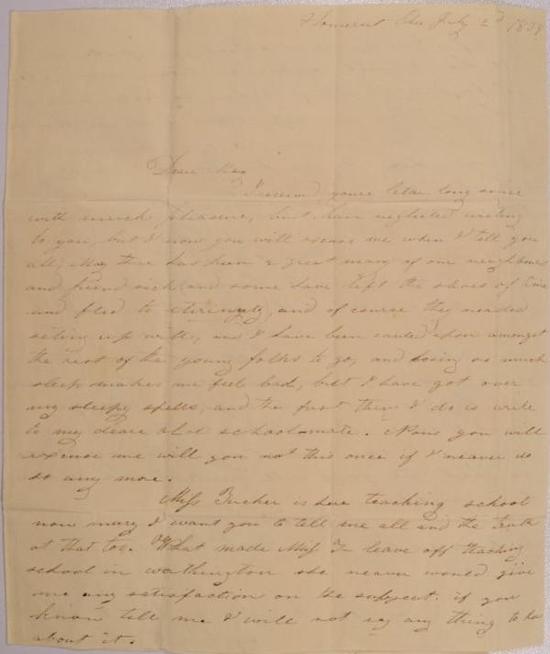 Somerset Ohio July 2d 1839
Dear May
Received youre letter long since
with much pleasure, but have neglected writing
to you, but I now you will excuse me when I tell you
all, May there has been a great many of our neighbours
and friends sick and some have left the shores of time
and fled to eternity, and of course they neaded
seting up with, and I have been caled upon amongst
the rest of the young folks to go, and losing so much
sleep makes me feel bad, but I have got over
my sleepy spells, and the first thing I do is write
to my deare old schoolmate. Now you will
excuse me will you not this once if I neaver do
so any more.
Miss Tucker is here teaching school
now mary I want you to tell me all and the truth
at that too. What made Miss T leave off teaching
school in worthington she neaver would give
me any satisfaction on the subject. if you
know tell me I will not say any thing to her
about it.